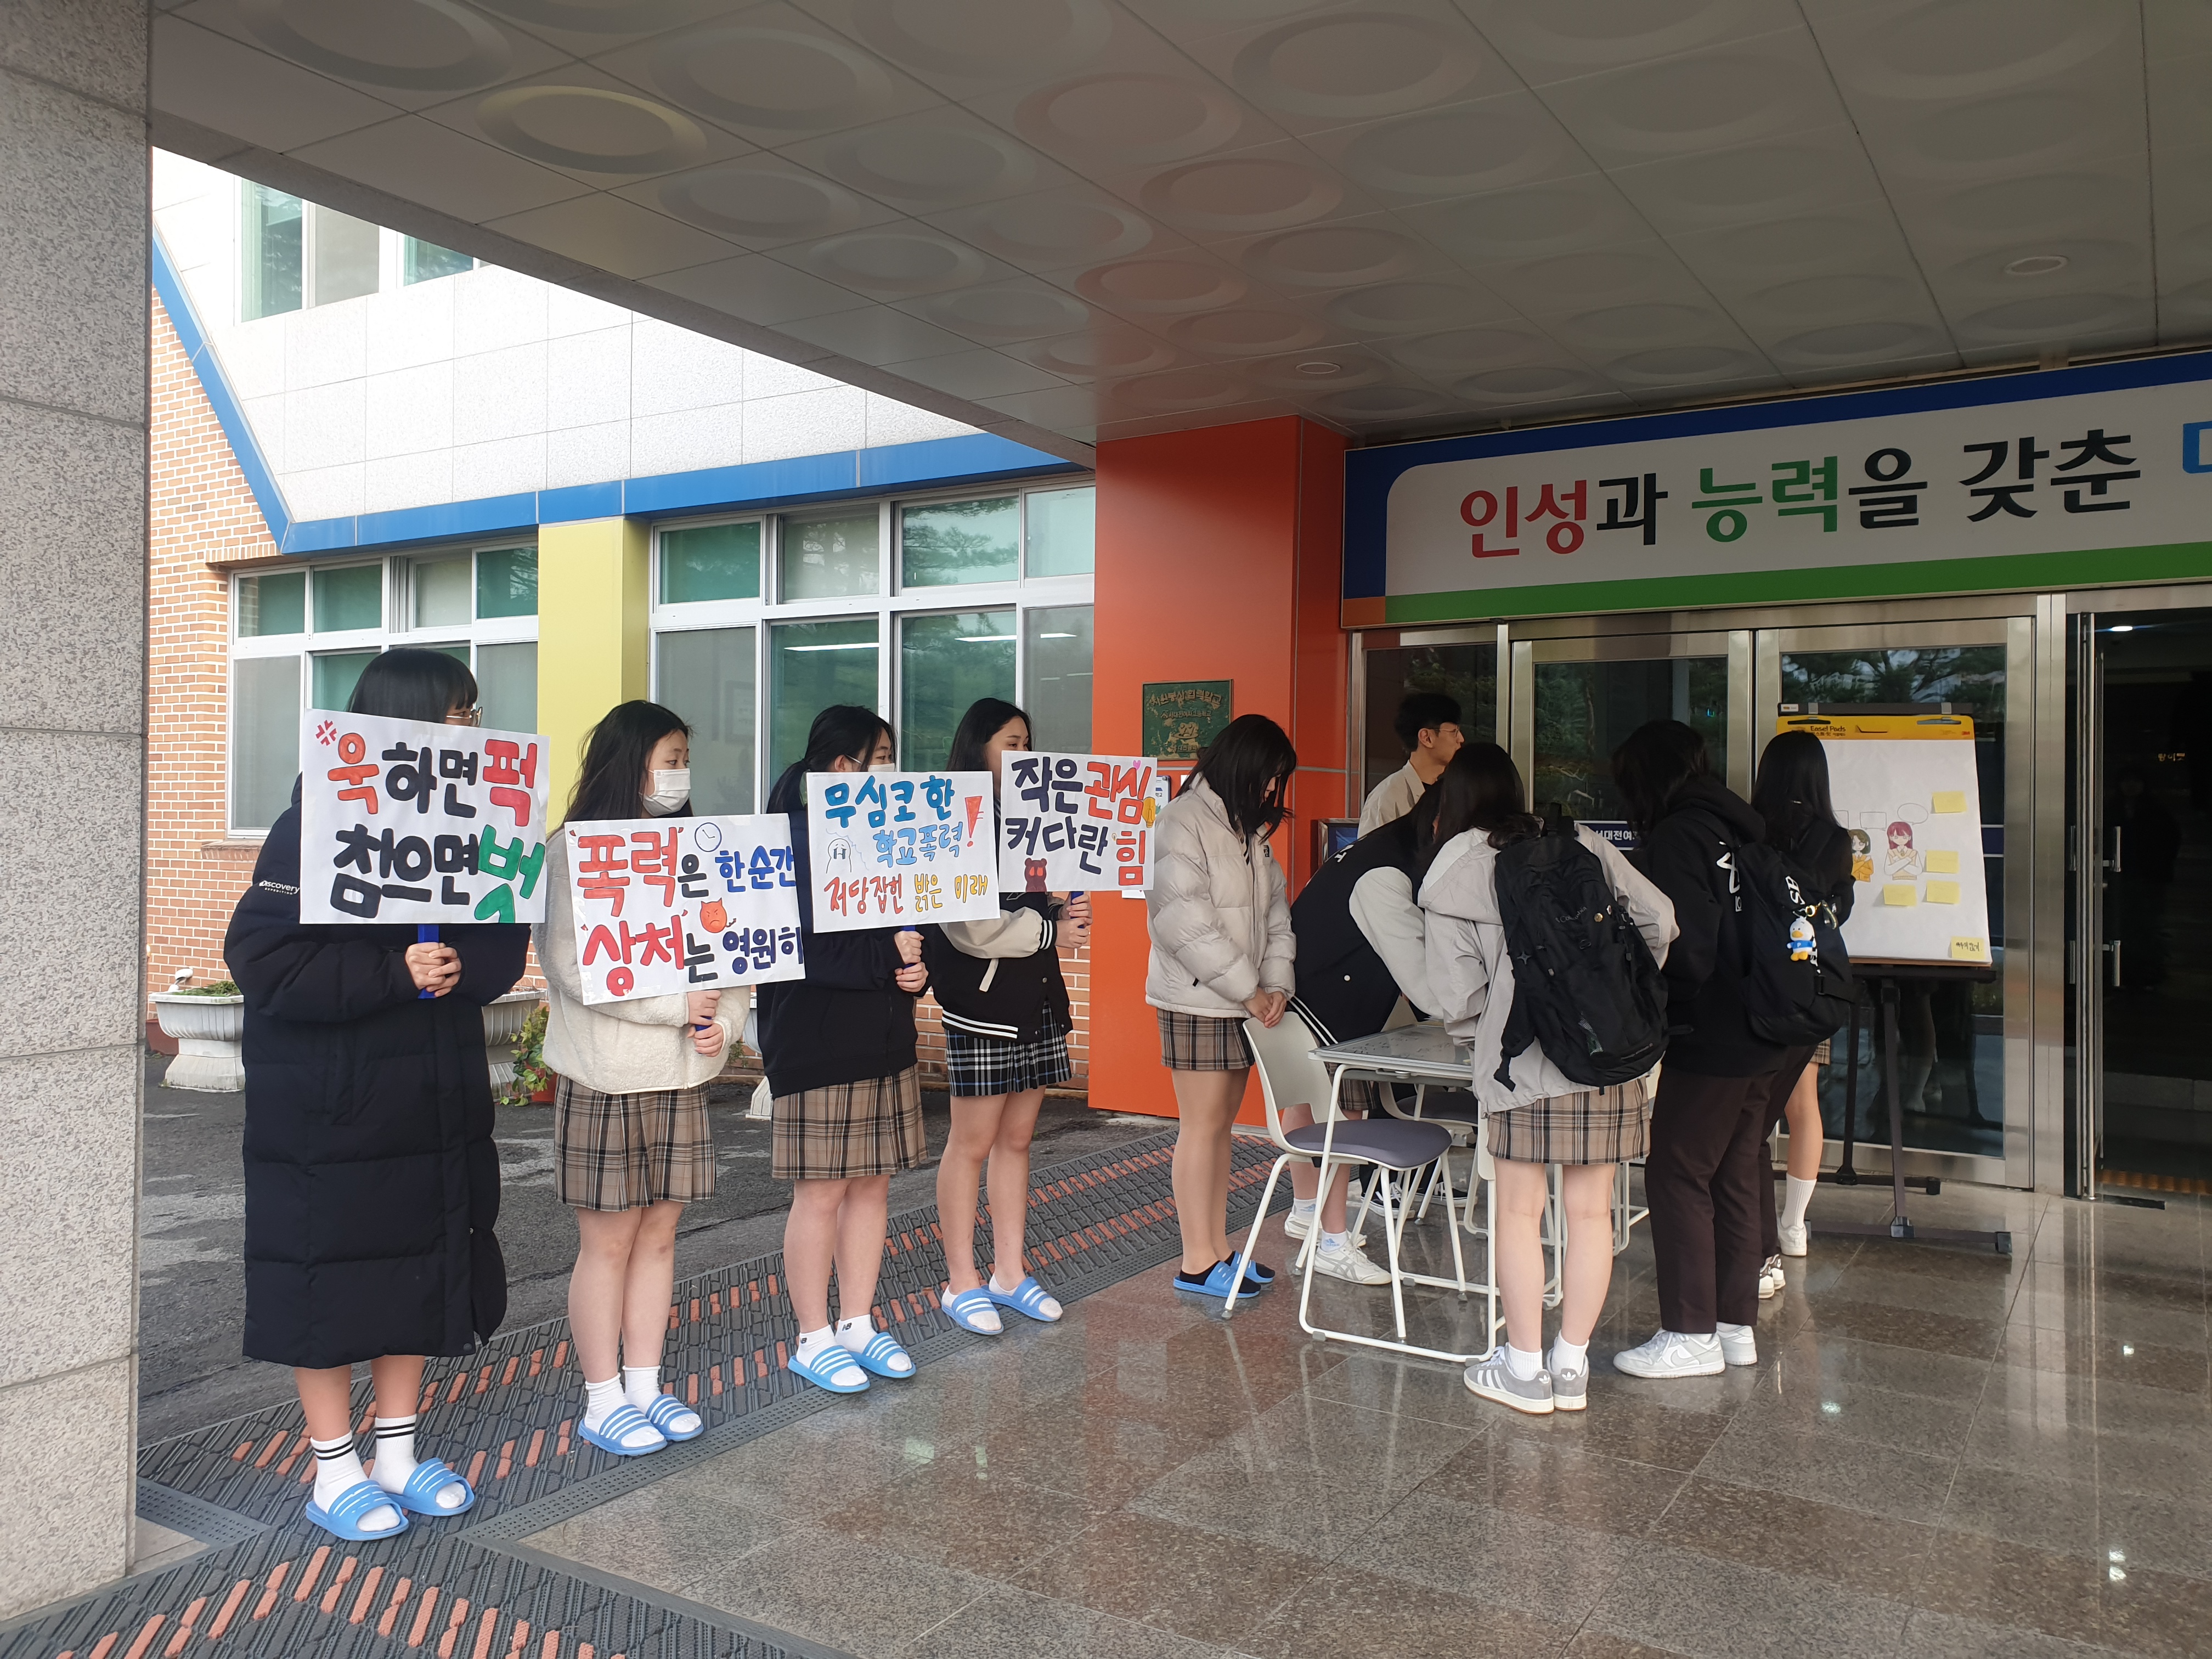 인성과 능력을 갖춘
욱하면 퍽
참으면 벗
폭력은 한순간
상처는 영원히
무심코 한
학교폭력!
저당잡힌 밝은 미래
작은 관심
커다란 힘
Easel Pads
서대전여